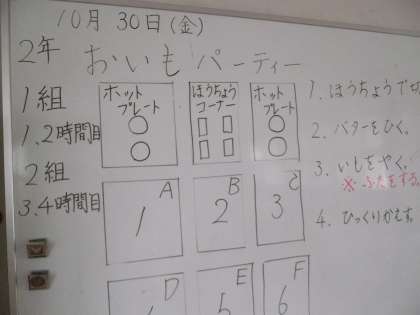 10月30日(金)
2年 おいもパーティー
1組
1.2時間目
2組
3.4時間目
ホットプレート
ほうちょうコーナー
ホットプレート
A
1
B
2
C
3
D
E
5
F
6
1. ほうちょうで切
2. バターをひく。
3. いもをやく。
※ ふたをする
4. ひっくりかえす。